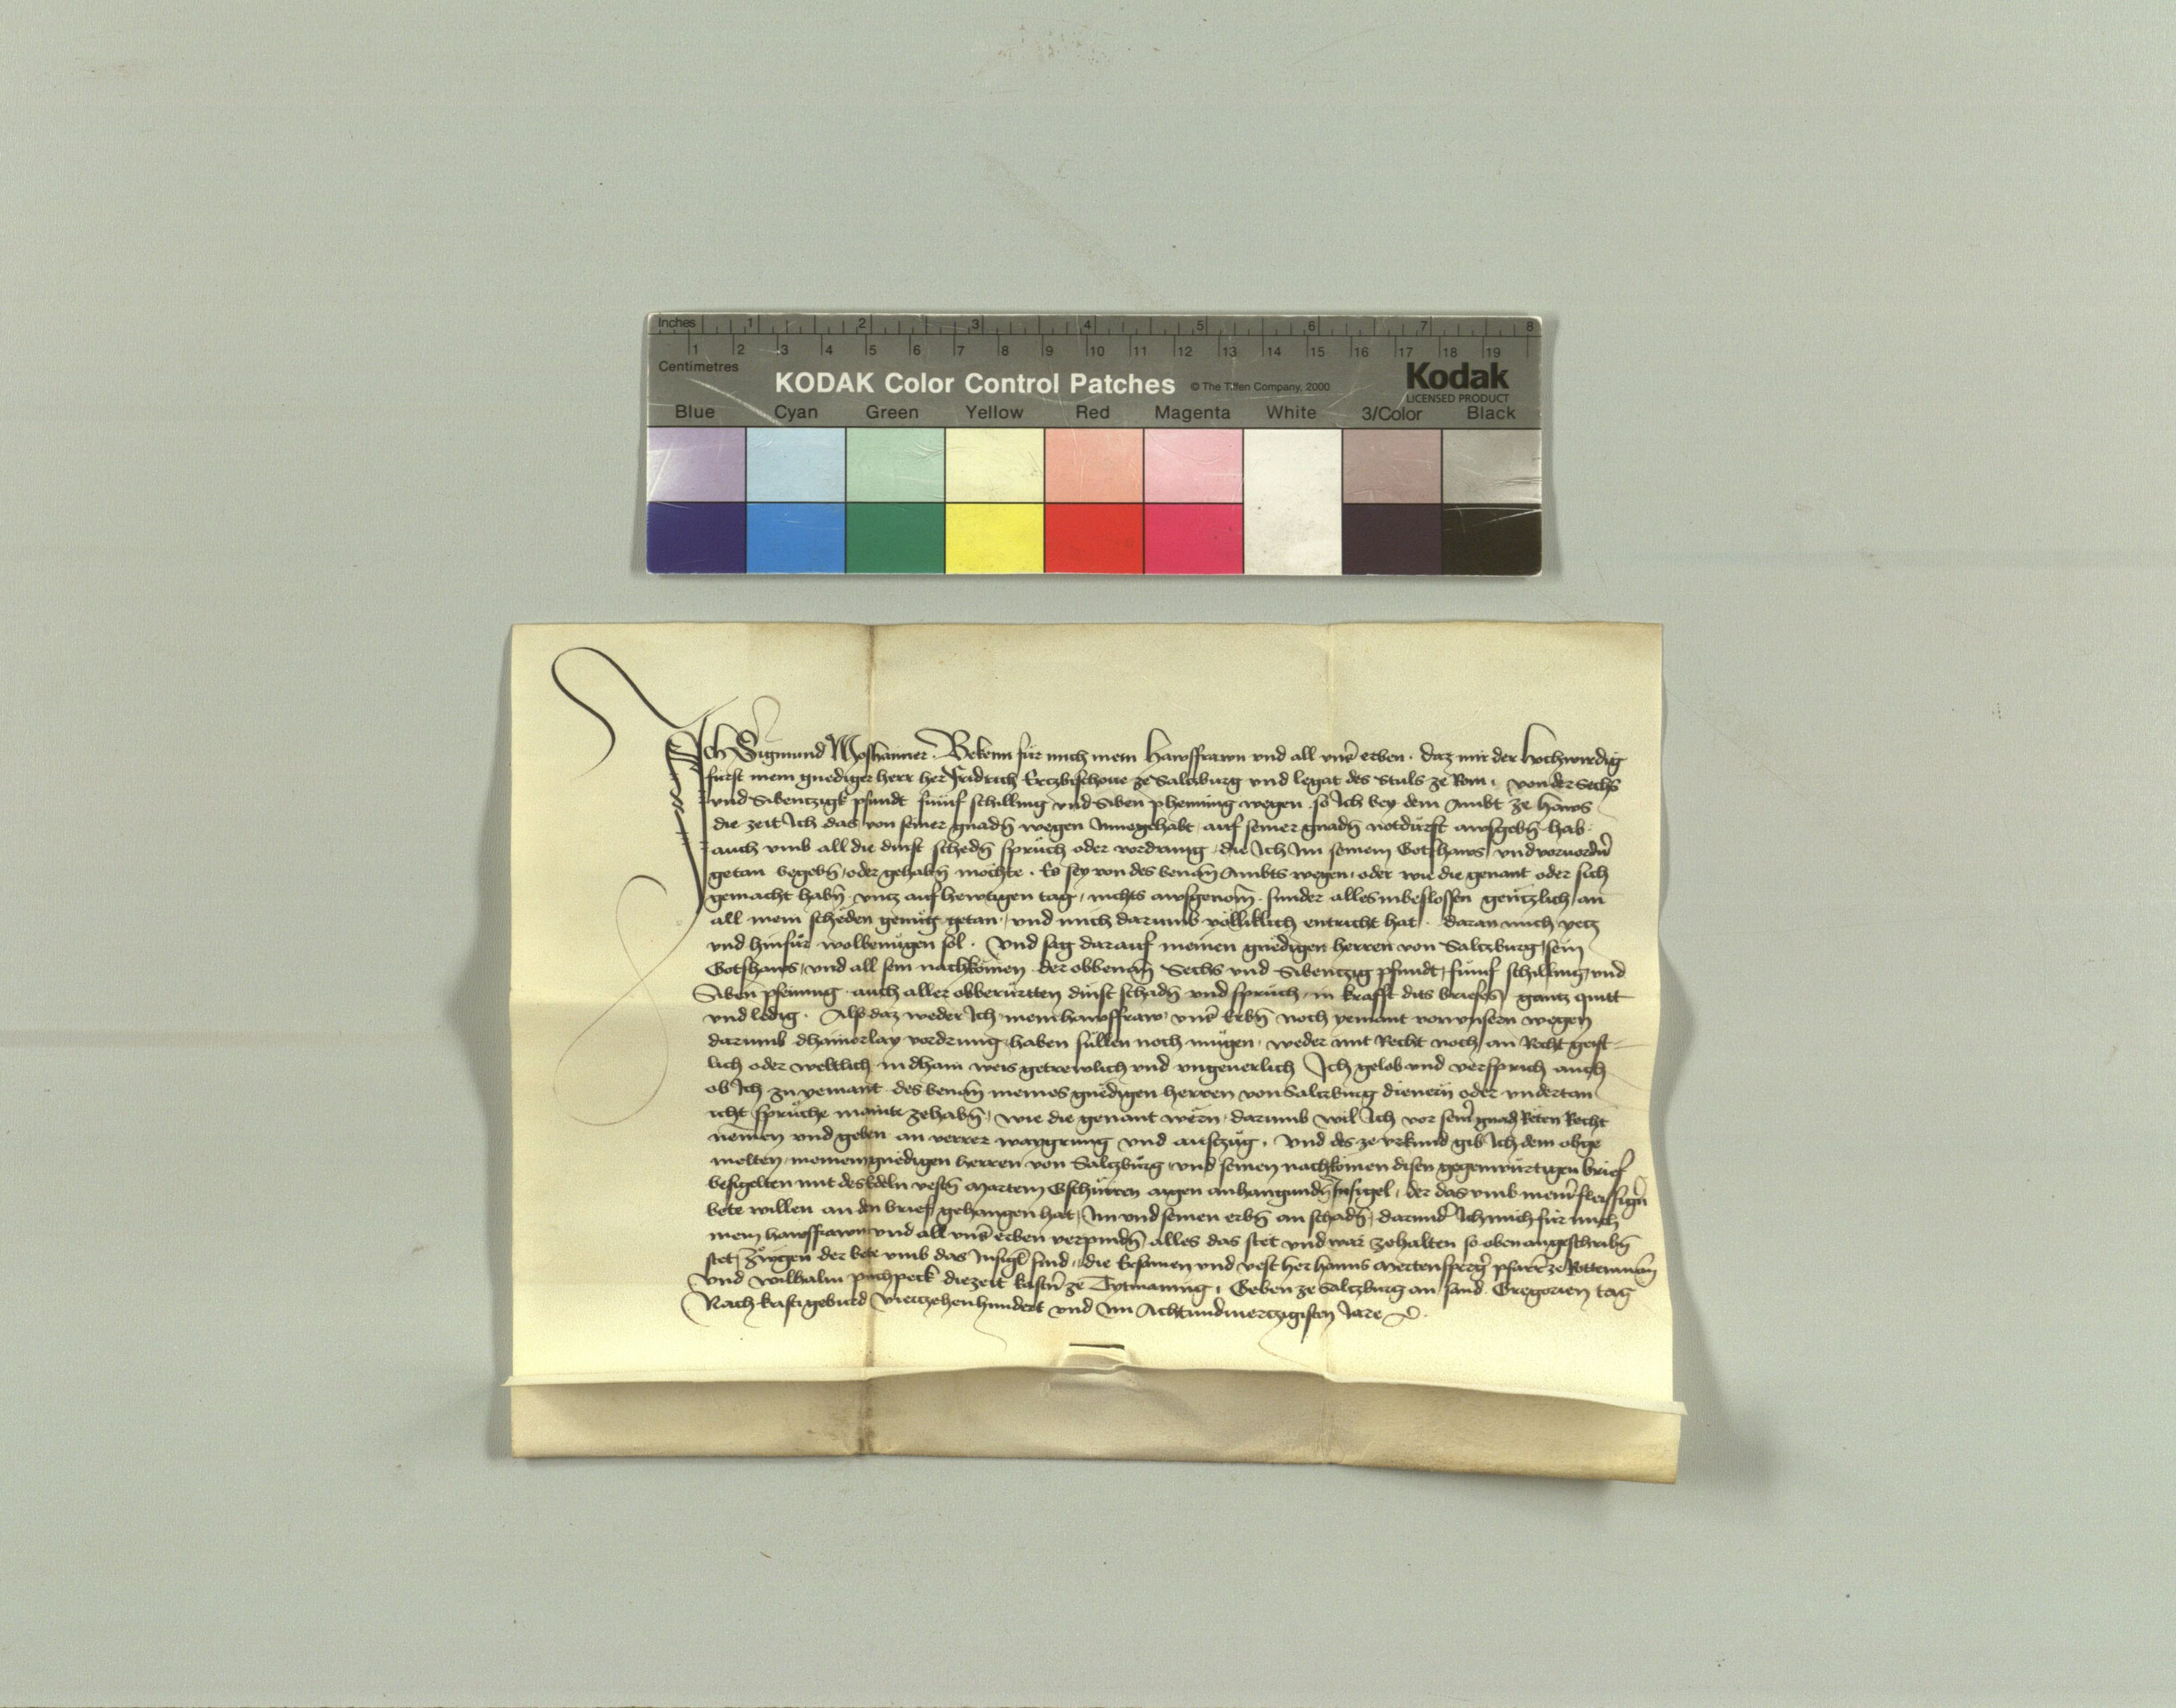 Inches 1 2 3 4 5 6 7 8
1 2 3 4 5 6 7 8 9 10 11 12 13 14 15 16 17 18 19
Centimetres
KODAK Color Control Patches © The Tiffen Company, 2000 Kodak
LICENSED PRODUCT
Blue Cyan Green Yellow Red Magenta White 3/Color Black
Ich Sigmund Moshaimer. Bekenn für mich mein hawsfrawn und all unsr̄ erben. daz mir der hochwirdig
fürst mein gnediger herr her Fridrich Ertzbischoue ze Saltzburg und legat des Stuls ze Rom, von der Sechs
und Sibentzigk pfundt fünf schilling und Siben phenning wegen so Ich bey dem Ambt ze haws
die zeit Ich das von seiner gnadn̄ wegen Innegehabt auf seiner gnadn̄ notdürft awsgebn̄ hab
auch umb all die dinst schedn̄ sprüch oder vordrung die Ich Im seinem Gotshaws und voruordn̄
getan begebn̄ oder gehabn̄ möchte. Es sey von des benan̄ Ambts wegen oder wie die genant oder sich
gemacht habn̄ untz auf hewtigen tag, nichts awsgenom̄ sunder alles inbeslossen gentzlich an
all mein scheden genüg getan, und mich darumb völliklich entricht hat. daran mich yetz
und hinfür wolbenügen sol. Und sag darauf meinen gnedigen herren von Saltzburg, sein
Gotshaws, und all sein nachkomen der obbenan̄ Sechs und Sibentzig pfundt, fünf schilling und
Siben pfening auch aller obberürtten dinst schadn̄ und sprüch in krafft dits briefes gantz quitt
und ledig. Also daz weder Ich mein hawsfraw unsr̄ Erbn̄ noch yemant von unsern wegen
darumb dhainerlay vordrung haben süllen noch mügen, weder mit Recht noch an Recht geist-
lich oder weltlich in dhain weis getrewlich und ungeuerlich Ich gelob und versprich auch
ob Ich zu yemant des benan̄ meines gnedigen herren von Saltzburg dienern oder undertan
icht sprüche mainte zehabn̄, wie die genant wern, darumb wil Ich vor seinr̄ gnad Reten Recht
nemen und geben an verrer waygrung und aufczüg. Und des ze urkund gib Ich dem obge
melten meinem gnedigen herren von Saltzburg und seinen nachkomen disen gegenwürtigen brief
besigelten mit des Edeln vestn̄ Martein Gschürren aigen anhangundn̄ Insigel, der das umb meinr̄ fleissign̄
bete willen an den brief gehangen hat, Im und seinen erbn̄ an schadn̄, darundr̄ Ich mich für mich
mein hawsfrawn und all unsr̄ erben verpindn̄ alles das stet und war zehalten so oben angeschribn̄
stet, Zwgen der bete umb das Insigl̄ sind, die Ersamen und vest her hanns pfarr̄ ze Rottenman̄
und Wilhalm puchpeck diezeit kastn̄ ze Tytmaning, Geben ze Saltzburg an sand Gregorien tag
Nach kristi geburd Viertzehenhundert und Im Achtundviertzigisten Jare